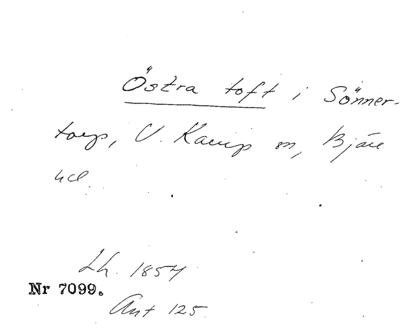 Östra toft i Sönner-
torp, V. Karup sn, Bjäre
hd.
Lh. 1854
Nr 7099.
Ant 125